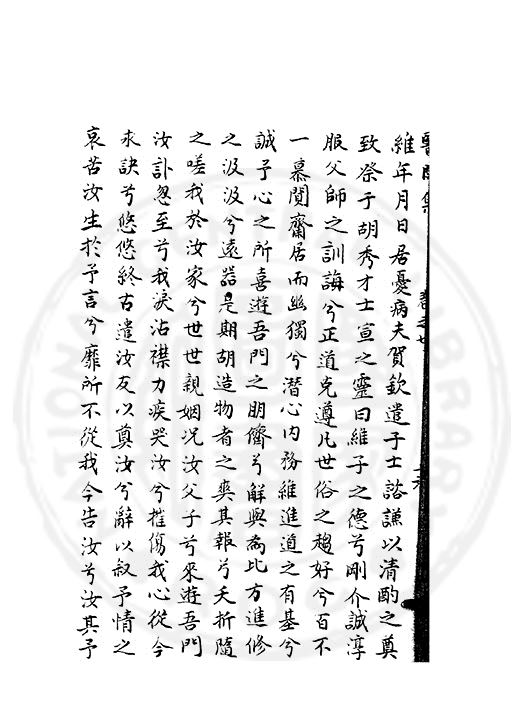 醫閭集
維年月日居憂病夫賀欽遣子士諮謙以清酌之奠
致祭于胡秀才士宣之靈曰維子之德兮剛介誠淳
服父師之訓誨兮正道克遵凡世俗之趨好兮百不
一慕閴齋居而幽獨兮潛心內務維進道之有基兮
誠予心之所喜遊吾門之朋儕兮鮮與為比方進修
之汲汲兮遠器是期胡造物者之爽其報兮夭折隨
之嗟我於汝家兮世世親姻况汝父子兮來遊吾門
汝訃忽至兮我淚沾襟力疾哭汝兮摧傷我心從今
永訣兮悠悠終古遣汝友以奠汝兮辭以叙予情之
哀苦汝生於予言兮靡所不從我今告汝兮汝其予